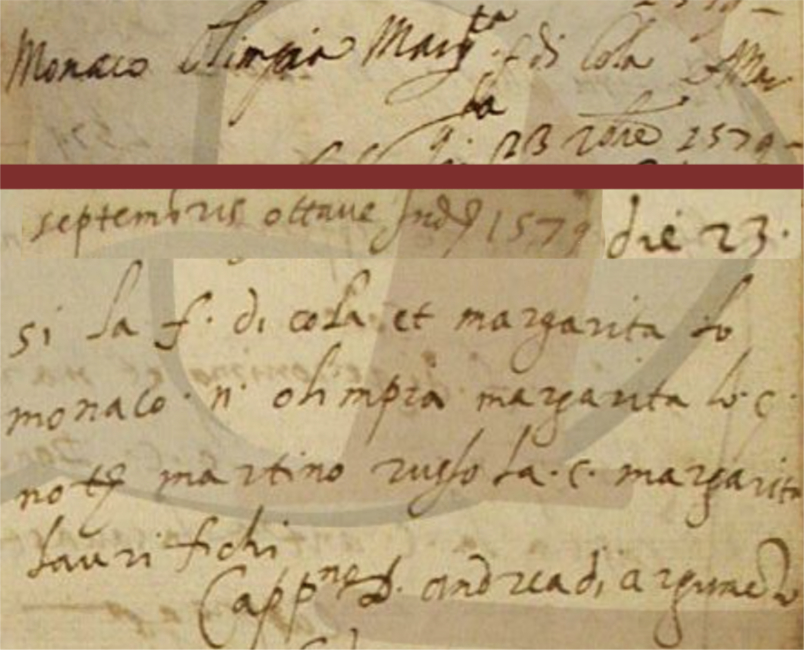 Monaco Olimpia Marg.ta f. di Cola et Mar
ta
23 7bre 1579
septembris ottave Ind 1579 die 23.
si la f. di cola et margarita lo
monaco. n. olimpia margarita lo. c.
not martino russo la. c. margarita
lauri fichi
Capp.ne D. andrea di argumento